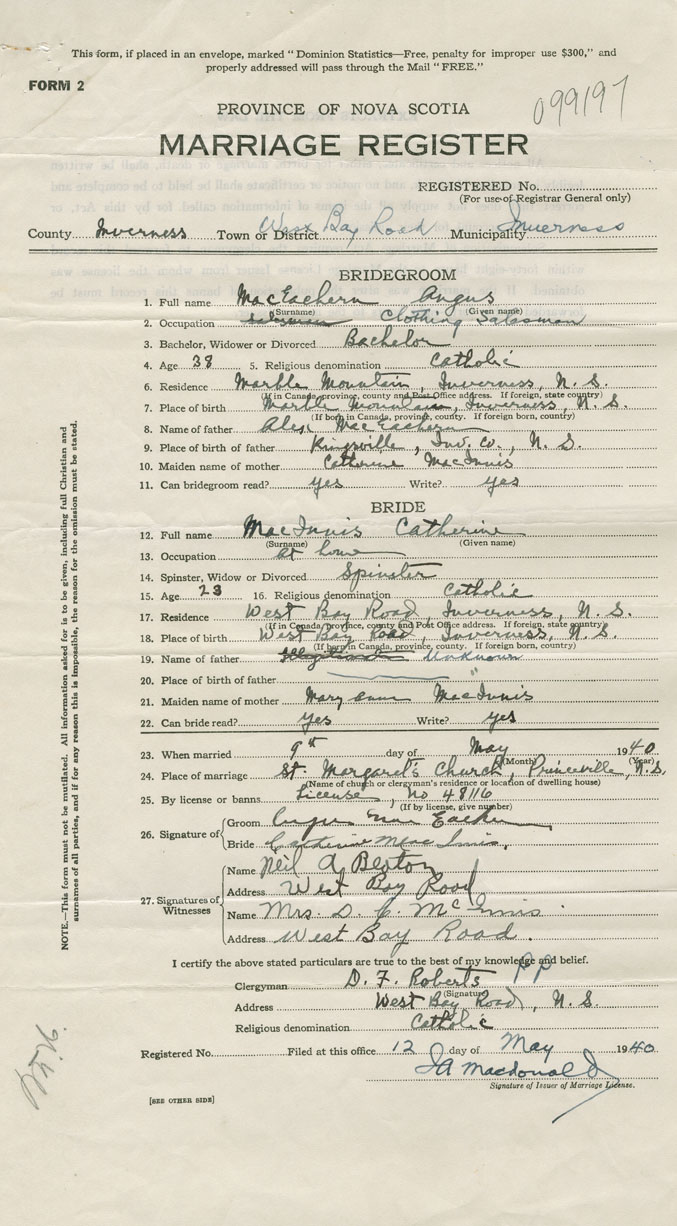 This form, if placed in an envelope, marked "Dominion Statistics—Free, penalty for improper use $300," and
properly addressed will pass through the Mail "FREE."
FORM 2
099197
PROVINCE OF NOVA SCOTIA
MARRIAGE REGISTER
REGISTERED No.
(For use of Registrar General only)
County Inverness Town or District West Bay Road Municipality Inverness
BRIDEGROOM
1. Full name MacEachern Angus
(Surname) (Given name)
2. Occupation Salesman Clothing Salasman
3. Bachelor, Widower or Divorced Bachelor
4. Age 38 5. Religious denomination Catholic
6. Residence Marble Mountain, Inverness, N. S.
(If in Canada, province, county and Post Office address. If foreign, state country)
7. Place of birth Marble Mountain, Inverness, N. S.
(If born in Canada, province, county. If foreign born, country)
8. Name of father Alex MacEachern
9. Place of birth of father Kingsville, Inv. Co., N. S.
10. Maiden name of mother Catherine MacInnis
11. Can bridegroom read? yes Write? yes
BRIDE
12. Full name MacInnis Catherine
(Surname) (Given name)
13. Occupation at home
14. Spinster, Widow or Divorced Spinster
15. Age 23 16. Religious denomination Catholic
17. Residence West Bay Road, Inverness, N. S.
(If in Canada, province, county and Post Office address. If foreign, state country)
18. Place of birth West Bay Road, Inverness, N. S.
(If born in Canada, province, county. If foreign born, country)
19. Name of father Illegitimate Unknown
20. Place of birth of father "
21. Maiden name of mother Mary Ann MacInnis
22. Can bride read? yes Write? yes
23. When married 9th day of May 1940
(Month) (Year)
24. Place of marriage St. Margaret's Church, Princeville, N.S.
(Name of church or clergyman's residence or location of dwelling house)
25. By license or banns License, No 48116
(If by license, give number)
26. Signature of
Groom Angus Mac Eachern
Bride Catherine Mac Innis,
27. Signatures of Witnesses
Name Neil A
Address West Bay Road
Name Mrs. D. C. McInnis
Address West Bay Road.
I certify the above stated particulars are true to the best of my knowledge and belief.
Clergyman D. F. Roberts PP
(Signature)
Address West Bay Road, N. S.
Religious denomination Catholic
Registered No. Filed at this office 12 day of May 1940
JA Macdonald
Signature of Issuer of Marriage License.
[SEE OTHER SIDE]
NOTE.—This form must not be mutilated. All information asked for is to be given, including full Christian and
surnames of all parties, and if for any reason this is impossible, the reason for the omission must be stated.